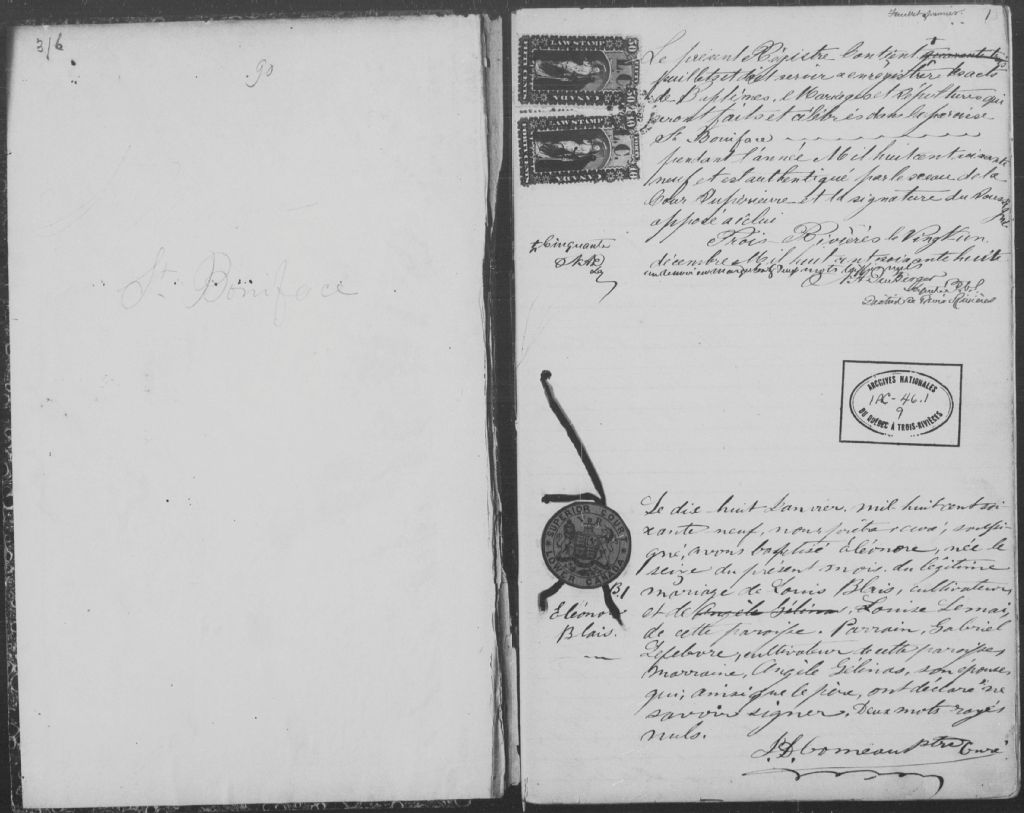 3/6
90
St Boniface
Feuillet premier.
1
LAW STAMP
L.C.
CANADA
LAW STAMP
L.C.
CANADA
Le présent Régistre Contient
feuillets et doit servir a enrégistrer les acts
de Baptêmes, Mariages et Sépultures qui
seront faits et célébrés dans la paroisse
St Boniface
pendant l'année Mil huit cent soixante
neuf et est authentiqué par le sceau de la
Cour Supérieure et la signature du
apposé a celui
Trois Rivières le Vingt un
décembre Mil huit cent soixante huite
mots nuls
District de Trois Rivières
Cinquante
ARCHIVES NATIONALES
1AC-46.1
9
DU QUÉBEC À TROIS-RIVIÈRES
SUPERIOR COURT
LOWER CANADA
B1
Eléonore
Blais.
Le dix-huit Janvier, mil huit cent soi-
xante-neuf, nous, prêtre curé, soussi-
gné, avons baptisé Eléonore, née le
seize du présent mois, du légitime
mariage de Louis Blais, cultivateur,
et de Angèle Gélinas, Louise Lemai,
de cette paroisse. Parrain, Gabriel
Lefebvre, cultivateur de cette paroisse,
marraine, Angèle Gélinas, son épouse
qui, ainsi que le père, ont déclaré ne
savoir signer. Deux mots rayés
nuls.
Comeau Ptre Curé